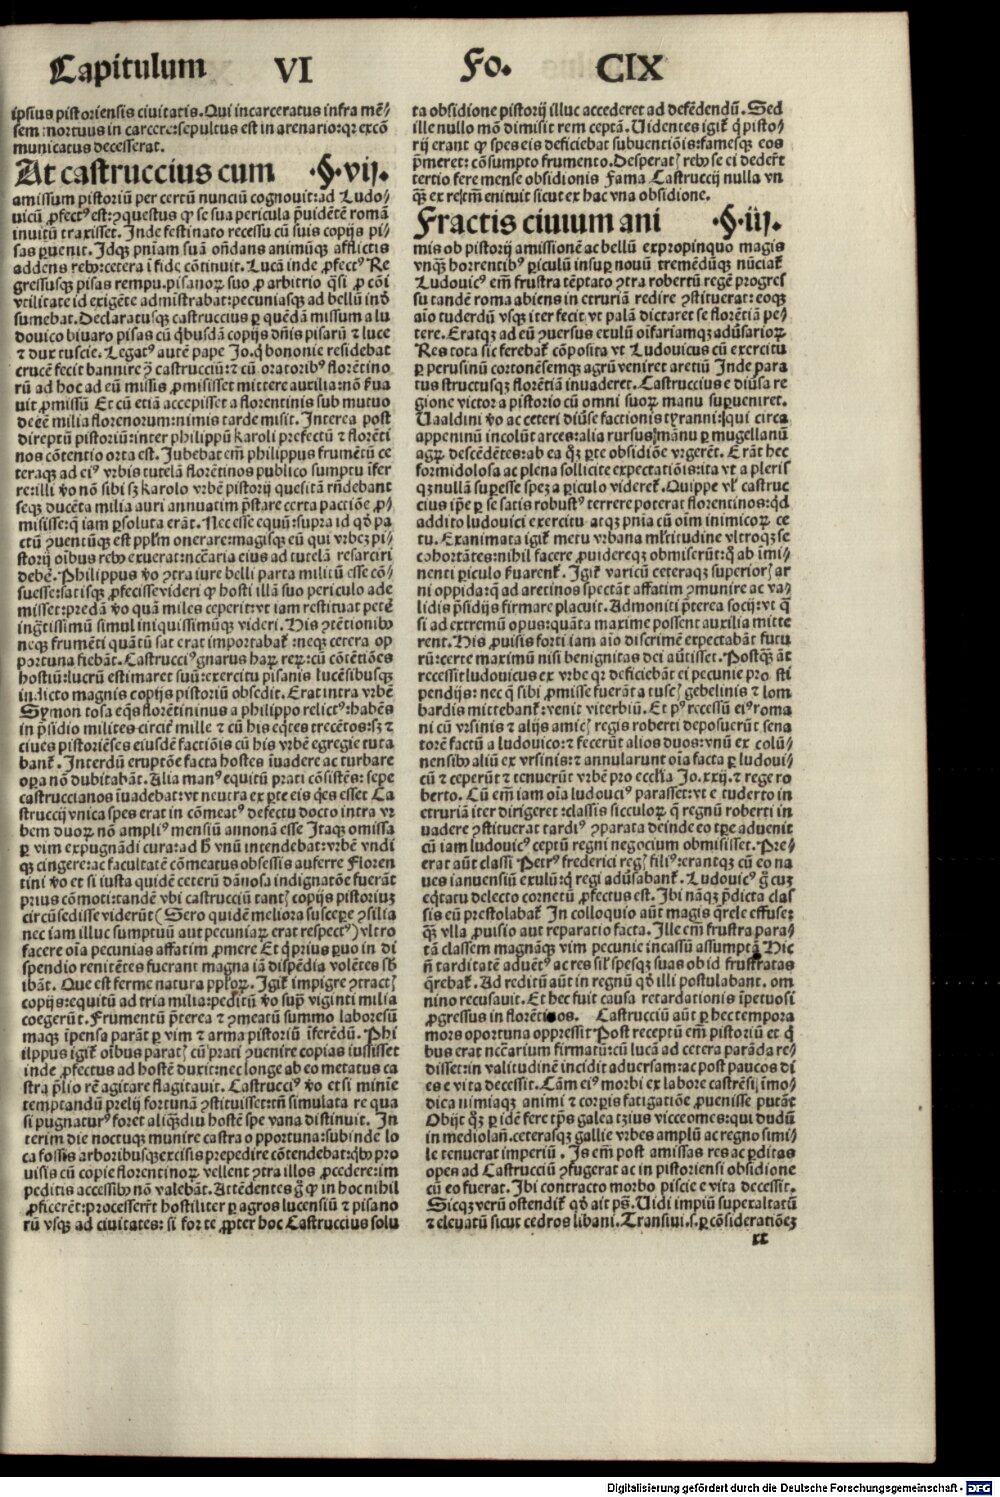 Capitulum VI Fo. CIX
ipsius pistoriensis ciuitatis. Qui incarceratus infra mē⸗
sem mortuus in carcere: sepultus est in arenario: qr excō
municatus decesserat.
At castruccius cum ·§·vij.
amissum pistoriū per certū nunciū cognouit: ad Ludo⸗
uicū ꝓfectꝰ est: ꝯquestus ꝙ se sua pericula p̄uidētē romā
inuitū traxisset. Inde festinato recessu cū suis copijs pi⸗
sas ꝑuenit. Idqꝫ pn̄iam suā on̄dans animūqꝫ afflictis
addens
gressusqꝫ pisas rempu. pisanoꝝ suo ꝓ arbitrio q̄si ꝓ cōi
vtilitate id exigēte admīstrabat: pecuniasqꝫ ad bellū inō
sumebat. Declaratusqꝫ castruccius ꝑ quēdā missum a lu
douico biuaro pisas cū q̄busdā copijs dn̄is pisarū ⁊ luce
⁊ dux tuscie. Legatꝰ autē pape Jo. q̄ bononie residebat
crucē fecit bannire ꝯ̄ castrucciū: ⁊ cū oratoribꝰ florētino
rū ad hoc ad eū missis ꝓmisisset mittere auxilia: nō ẜua
uit ꝓmissū Et cū etiā accepisset a florentinis sub mutuo
decē milia florenorum: nimis tarde misit. Interea post
direptū pistoriū: inter philippū karoli prefectū ⁊ florēti
nos cōtentio orta est. Jubebat em̄ philippus frumētū ce
teraqꝫ ad eiꝰ vrbis tutelā florētinos publico sumptu īfer
re: illi ꝟo nō sibi sꝫ karolo vrbē pistorij quesitā rn̄debant
seqꝫ ducēta milia auri annuatim p̄stare certa pactiōe ꝓ⸗
misisse: q̄ iam ꝑsoluta erāt. Nec esse equū: supra id qō pa
ctū ꝯuentūqꝫ est ppl̄m onerare: magisqꝫ eū qui vrbeꝫ pi⸗
storij oībus rebꝰ exuerat: ncc̄aria eius ad tutelā resarciri
debē. Philippus ꝟo ꝯtra iure belli parta militū esse cō⸗
suesse: satisqꝫ ꝓfecisse videri ꝙ hosti illā suo periculo ade
misset: predā ꝟo quā miles ceperit: vt iam restituat petē
ingtissimū simul iniquissimūqꝫ videri. His ꝯtētionibꝰ
neqꝫ frumēti quātū sat erat importabat̄: neqꝫ cetera op
portuna fiebāt. Castrucciꝰ gnarus haꝝ reꝝ: cū cōtētiōes
hostiū: lucrū estimaret suū: exercitu pisanis lucēsibusqꝫ
indicto magnis copijs pistoriū obsedit. Erat intra vrbē
Symon tosa eq̄s florētininus a philippo relictꝰ: habēs
in p̄sidio milites circit̄ mille ⁊ cū his eq̄tes trecētos: sꝫ ⁊
ciues pistoriēses eiusdē factiōis cū his vrbē egregie tuta
bant̄. Interdū eruptōe facta hostes īuadere ac turbare
opa nō dubitabāt. Alia manꝰ equitū prati cōsistēs: sepe
castruccianos īuadebat: vt neutra ex ꝑte eis q̄es esset Ca
struccij vnica spes erat in cōmeatꝰ defectu docto intra vr
bem duoꝝ nō ampliꝰ mensiū annonā esse Itaqꝫ omissa
ꝑ vim expugnādi cura: ad h̄ vnū intendebat: vrbē vndi
qꝫ cingere: ac facultatē cōmeatus obsessis auferre Floren
tini ꝟo et si iusta quidē ceterū dānosa indignatōe fuerāt
prius cōmoti: tandē vbi castrucciū tantꝭ copijs pistoriuꝫ
circūsedisse viderūt (Sero quidē meliora suscepe ꝯsilia
nec iam illuc sumptuū aut pecuniaꝝ erat respectꝰ) vltro
facere oīa pecunias affatim ꝓmere Et q̄prius ꝑuo in di
spendio renitētes fuerant magna iā dispēdia volētes sb̄
ibāt. Que est ferme natura ppl̄oꝝ. Igit̄ impigre ꝯtractꝭ
copijs: equitū ad tria milia: peditū ꝟo sup̄ viginti milia
coegerūt. Frumentū p̄terea ⁊ ꝯmeatū summo laboresū
maqꝫ īpensa parāt ꝑ vim ⁊ arma pistoriū īferēdū. Phi
lippus igit̄ oībus paratꝭ cū prati ꝯuenire copias iussisset
inde ꝓfectus ad hostē duxit: nec longe ab eo metatus ca
stra p̄lio rē agitare flagitauit. Castrucciꝰ ꝟo etsi minie
temptandū prelij fortunā ꝯstituisset: tn̄ simulata re qua
si pugnaturꝰ foret aliq̄diu hostē spe vana distinuit. In
terim die noctuqꝫ munire castra opportuna: subinde lo
ca fossis arboribusqꝫ excisis prepedire cōtendebat: qbꝰ pro
uisis cū copie florentinoꝝ vellent ꝯtra illos ꝓcedere: im
peditis accessibꝰ nō valebāt. Attēdentes g̊ ꝙ in hoc nihil
ꝓficerēt: processerūt hostiliter ꝑ agros lucensiū ⁊ pisano
rū vsqꝫ ad ciuitates: si forte ꝓpter hoc Castruccius solu
ta obsidione pistorij illuc accederet ad defēdendū. Sed
ille nullo mō dimisit rem ceptā. Uidentes igit̄ q̄ pisto⸗
rij erant ꝙ spes eis deficiebat subuentiōis: famesqꝫ eos
p̄meret: cōsumpto frumento. Desperatꝭ rebꝰ se ei dederūt
tertio fere mense obsidionis Fama Castruccij nulla vn
q̄ꝫ ex re enituit sicut ex hac vna obsidione.
Fractis ciuium ani ·§·iij.
mis ob pistorij amissionē ac bellū ex propinquo magis
vnqꝫ horrentibꝰ ꝑiculū insuꝑ nouū tremēdūqꝫ nūciat̄
Ludouicꝰ em̄ frustra tēptato ꝯtra robertū regē progres
su tandē roma abiens in etruriā redire ꝯstituerat: eoqꝫ
aīo tuderdū vsqꝫ iter fecit vt palā dictaret se florētiā pe⸗
tere. Eratqꝫ ad eū ꝯuersus exulū oīfariamqꝫ adūsarioꝝ
Res tota sic ferebat̄ cōposita vt Ludouicus cū exercitu
ꝑ perusinū cortonēsemqꝫ agrū veniret aretiū Inde para
tus structusqꝫ florētiā inuaderet. Castruccius e diūsa re
gione victor a pistorio cū omni suoꝝ manu suꝑueniret.
Uaaldini ꝟo ac ceteri diūse factionis tyranni: qui circa
appeninū incolūt arces: alia rursus manu ꝑ mugellanū
agꝝ descēdētes: ab ea qꝫ ꝑte obsidiōe vrgerēt. Erāt hec
formidolosa ac plena sollicite expectatiōis: ita vt a plerisꝗ
qꝫ nullā supesse spez a ꝑiculo videret̄. Quippe vl̓ castruc
cius ip̄e ꝑ se satis robustꝰ terrere poterat florentinos: q̄d
addito ludouici exercitu atqꝫ pnīa cū oīm inimicoꝝ ce
tu. Exanimata igit̄ metu vrbana ml̓titudine vltroqꝫ se
cohortātes: nihil facere ꝓuidereqꝫ obmiserūt: q̄ ab īmi⸗
nenti ꝑiculo ẜuarent̄. Igit̄ varicū ceteraqꝫ superiorꝭ ar
ni oppida: q̄ ad aretinos spectāt affatim ꝯmunire ac va⸗
lidis p̄sidijs firmare placuit. Admoniti p̄terea socij: vt q̄
si ad extremū opus: quāta maxime possent auxilia mitte
rent. His ꝓuisis forti iam aīo discrimē expectabāt futu
rū: certe maximū nisi benignitas dei aūtisset. Postq̄ꝫ āt
recessit ludouicus ex vrbe qr deficiebāt ei pecunie pro sti
pendijs: nec q̄ sibi ꝓmisse fuerāt a tuscꝭ gebelinis ⁊ lom
bardis mittebant̄: venit viterbiū. Et pꝰ recessū eiꝰ roma
ni cū vrsinis ⁊ alijs amicꝭ regis roberti deposuerūt sena
torē factū a ludouico: ⁊ fecerūt alios duos: vnū ex colū⸗
nensibꝰ aliū ex vrsinis: ⁊ annularunt oīa facta ꝑ ludoui⸗
cū ⁊ ceperūt ⁊ tenuerūt vrbē pro eccl̓ia Jo. xxij. ⁊ rege ro
berto. Cū em̄ iam oīa ludouicꝰ parasset: vt e tuderto in
etruriā iter dirigeret: classis sicculoꝝ q̄ regnū roberti in
uadere ꝯstituerat tardiꝰ ꝯparata deinde eo tꝑe aduenit
cū iam ludouicꝰ ceptū regni negocium obmisisset. Pre⸗
erat aūt classi Petrꝰ frederici regꝭ filiꝰ: erantqꝫ cū eo na
ues ianuensiū exulū: q̄ regi adūsabant̄. Ludouicꝰ g̊ cuꝫ
eq̄tatu delecto cornetū ꝓfectus est. Ibi nāqꝫ p̄dicta clas
sis eū prestolabat̄ In colloquio aūt magis q̄rele effuse:
q̄ꝫ vlla ꝓuisio aut reparatio facta. Ille em̄ frustra para⸗
tā classem magnāqꝫ vim pecunie incassū assumptā Hic
n̄ tarditatē aduētꝰ ac res sil̓ spesqꝫ suas ob id frustratas
q̄rebat̄. Ad reditū aūt in regnū qō illi postulabant. om
nino recusauit. Et hec fuit causa retardationis īpetuosi
ꝓgressus in florētinos. Castrucciū aūt ꝑ hec tempora
mors oportuna oppressit Post receptū em̄ pistoriū et q̄
bus erat nec̄arium firmatū: cū lucā ad cetera parāda re⸗
disset: in valitudinē incidit aduersam: ac post paucos di
es e vita decessit. Cām eiꝰ morbi ex labore castrēsi: īmo⸗
dica nimiaqꝫ animi ⁊ corꝑis fatigatiōe ꝓuenisse putāt
Obijt qꝫ ꝑ idē fere tp̄s galeatzius viccecomes: qui dudū
in mediolan̄. ceterasqꝫ gallie vrbes amplū ac regno simi⸗
le tenuerat imperiū. Is em̄ post amissas res ac ꝑditas
opes ad Castrucciū ꝯfugerat ac in pistoriensi obsidione
cū eo fuerat. Ibi contracto morbo piscie e vita decessit.
Sicqꝫ verū ostendit̄ qō ait ps̄. Uidi impiū superaltatū
⁊ eleuatū sicut cedros libani. Transiui. s. ꝑ cōsiderationeꝫ
xx
Digitalisierung gefördert durch die Deutsche Forschungsgemeinschaft - DFG